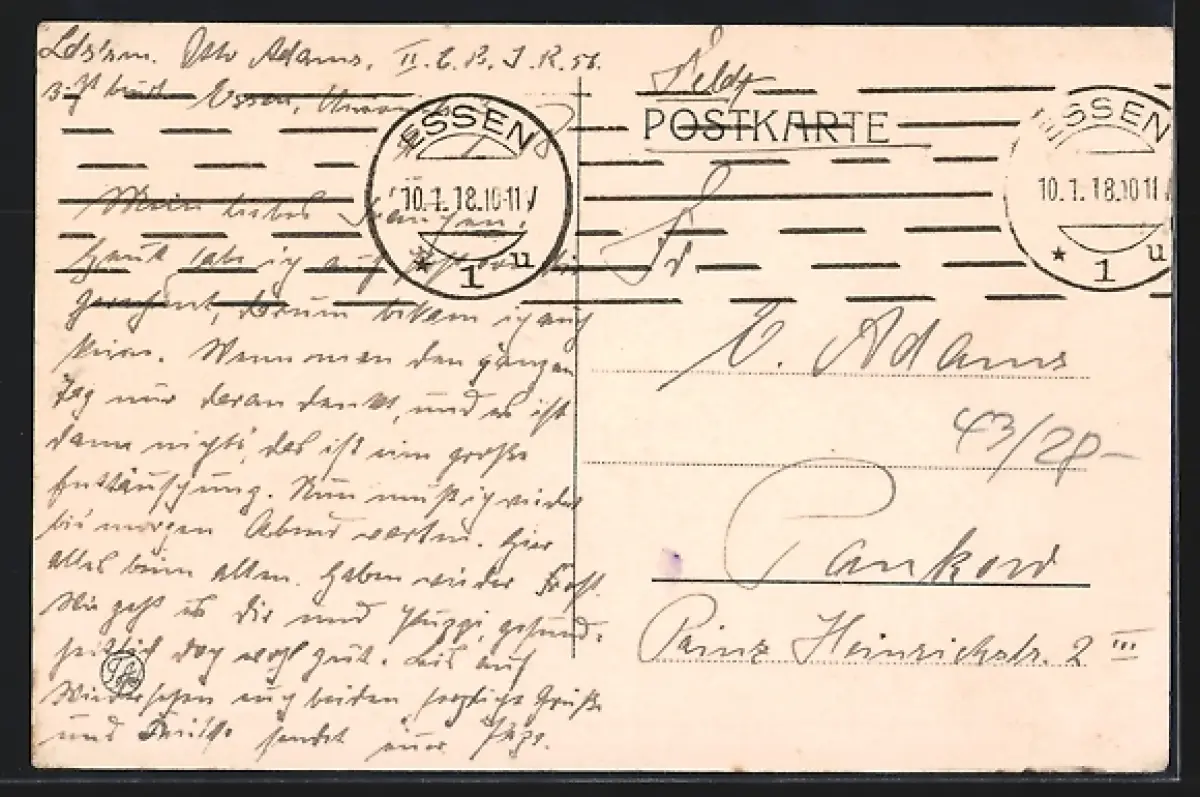 Ldstrm. Otto Adams, II. E. B. I. R. 56.
Essen,
Feldp
POSTKARTE
ESSEN
10.1.18.10-11 V
* 1 u
ESSEN
10.1.18.10-11
* 1 u
Mein liebes
Heut habe ich auf
gerechnet, darum bekam ich auch
keine. Wenn man den ganzen
Tag nur daran denkt, und es ist
dann nichts, das ist eine große
Enttäuschung. Nun muß ich wieder
bis morgen Abend warten. Hier
alles beim alten. Haben wieder Frost.
Wie geht es Dir und Puppi, gesund-
heitlich doch wohl gut. Bis auf
Wiedersehen euch beiden herzliche Grüße
und Küsse sendet euer Papa.
Fr
E. Adams
43/28-
Pankow
Prinz Heinrichstr. 2 III